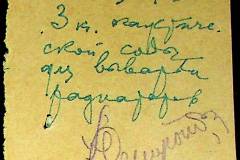 3 кг. каустиче-
ской соды
для выварки
радиаторов